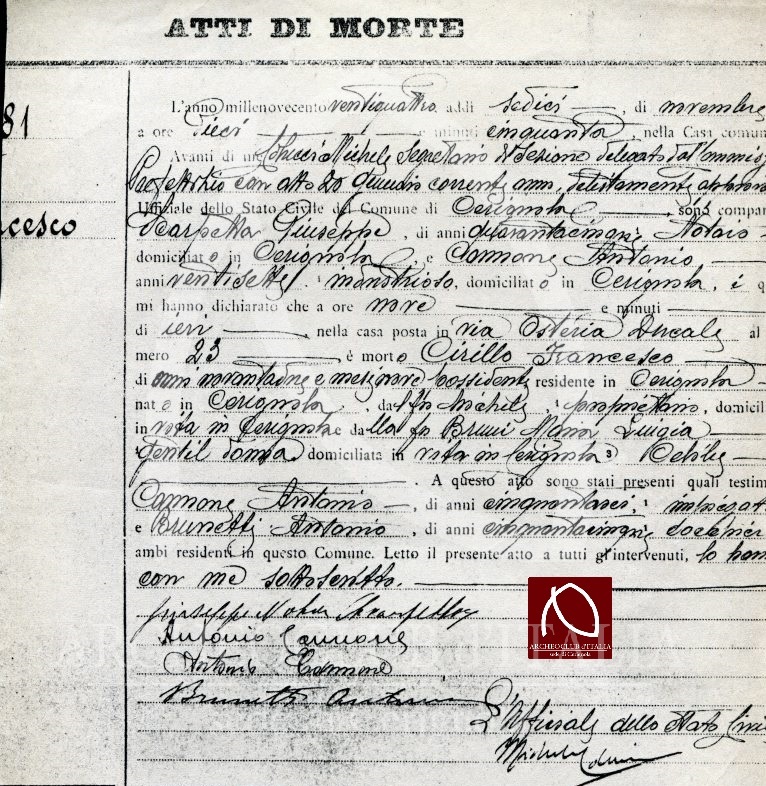 ATTI DI MORTE
81
cesco
L'anno millenovecento ventiquattro, addì sedici, di novembre
a ore dieci e minuti cinquanta, nella Casa comun
Avanti di me Michele Segretario di Sezione delegato dal Commiss
Prefettizio con atto 20 Giugno corrente anno, debitamente approva
Uffiziale dello Stato Civile del Comune di Cerignola, sono compar
Scarpetta Giuseppe, di anni quarantacinque, Notaio
domiciliato in Cerignola, e Cannone Antonio
anni ventisette, industrioso, domiciliato in Cerignola, i q
mi hanno dichiarato che a ore nove e minuti
di ieri, nella casa posta in via Osteria Ducale al
mero 23, è morto Cirillo Francesco
di anni novantadue e mesi nove possidente residente in Cerignola
nato in Cerignola, dal fu Michele, proprietario, domicil
in vita in Cerignola e dalla fu Bruni Maria Luigia
gentil donna, domiciliata in vita in Cerignola, Celibe
A questo atto sono stati presenti quali testim
Cannone Antonio, di anni cinquantasei, impiegat
e Brunetti Antonio, di anni cinquantacinque
ambi residenti in questo Comune. Letto il presente atto a tutti gl'intervenuti, lo han
con me sottoscritto.
Giuseppe Notar Scarpetta
Antonio Cannone
Antonio Cannone
Brunetti Antonio
L'Uffiziale dello Stato Civi
Michele
ARCHEOCLUB D'ITALIA
sede di Cerignola